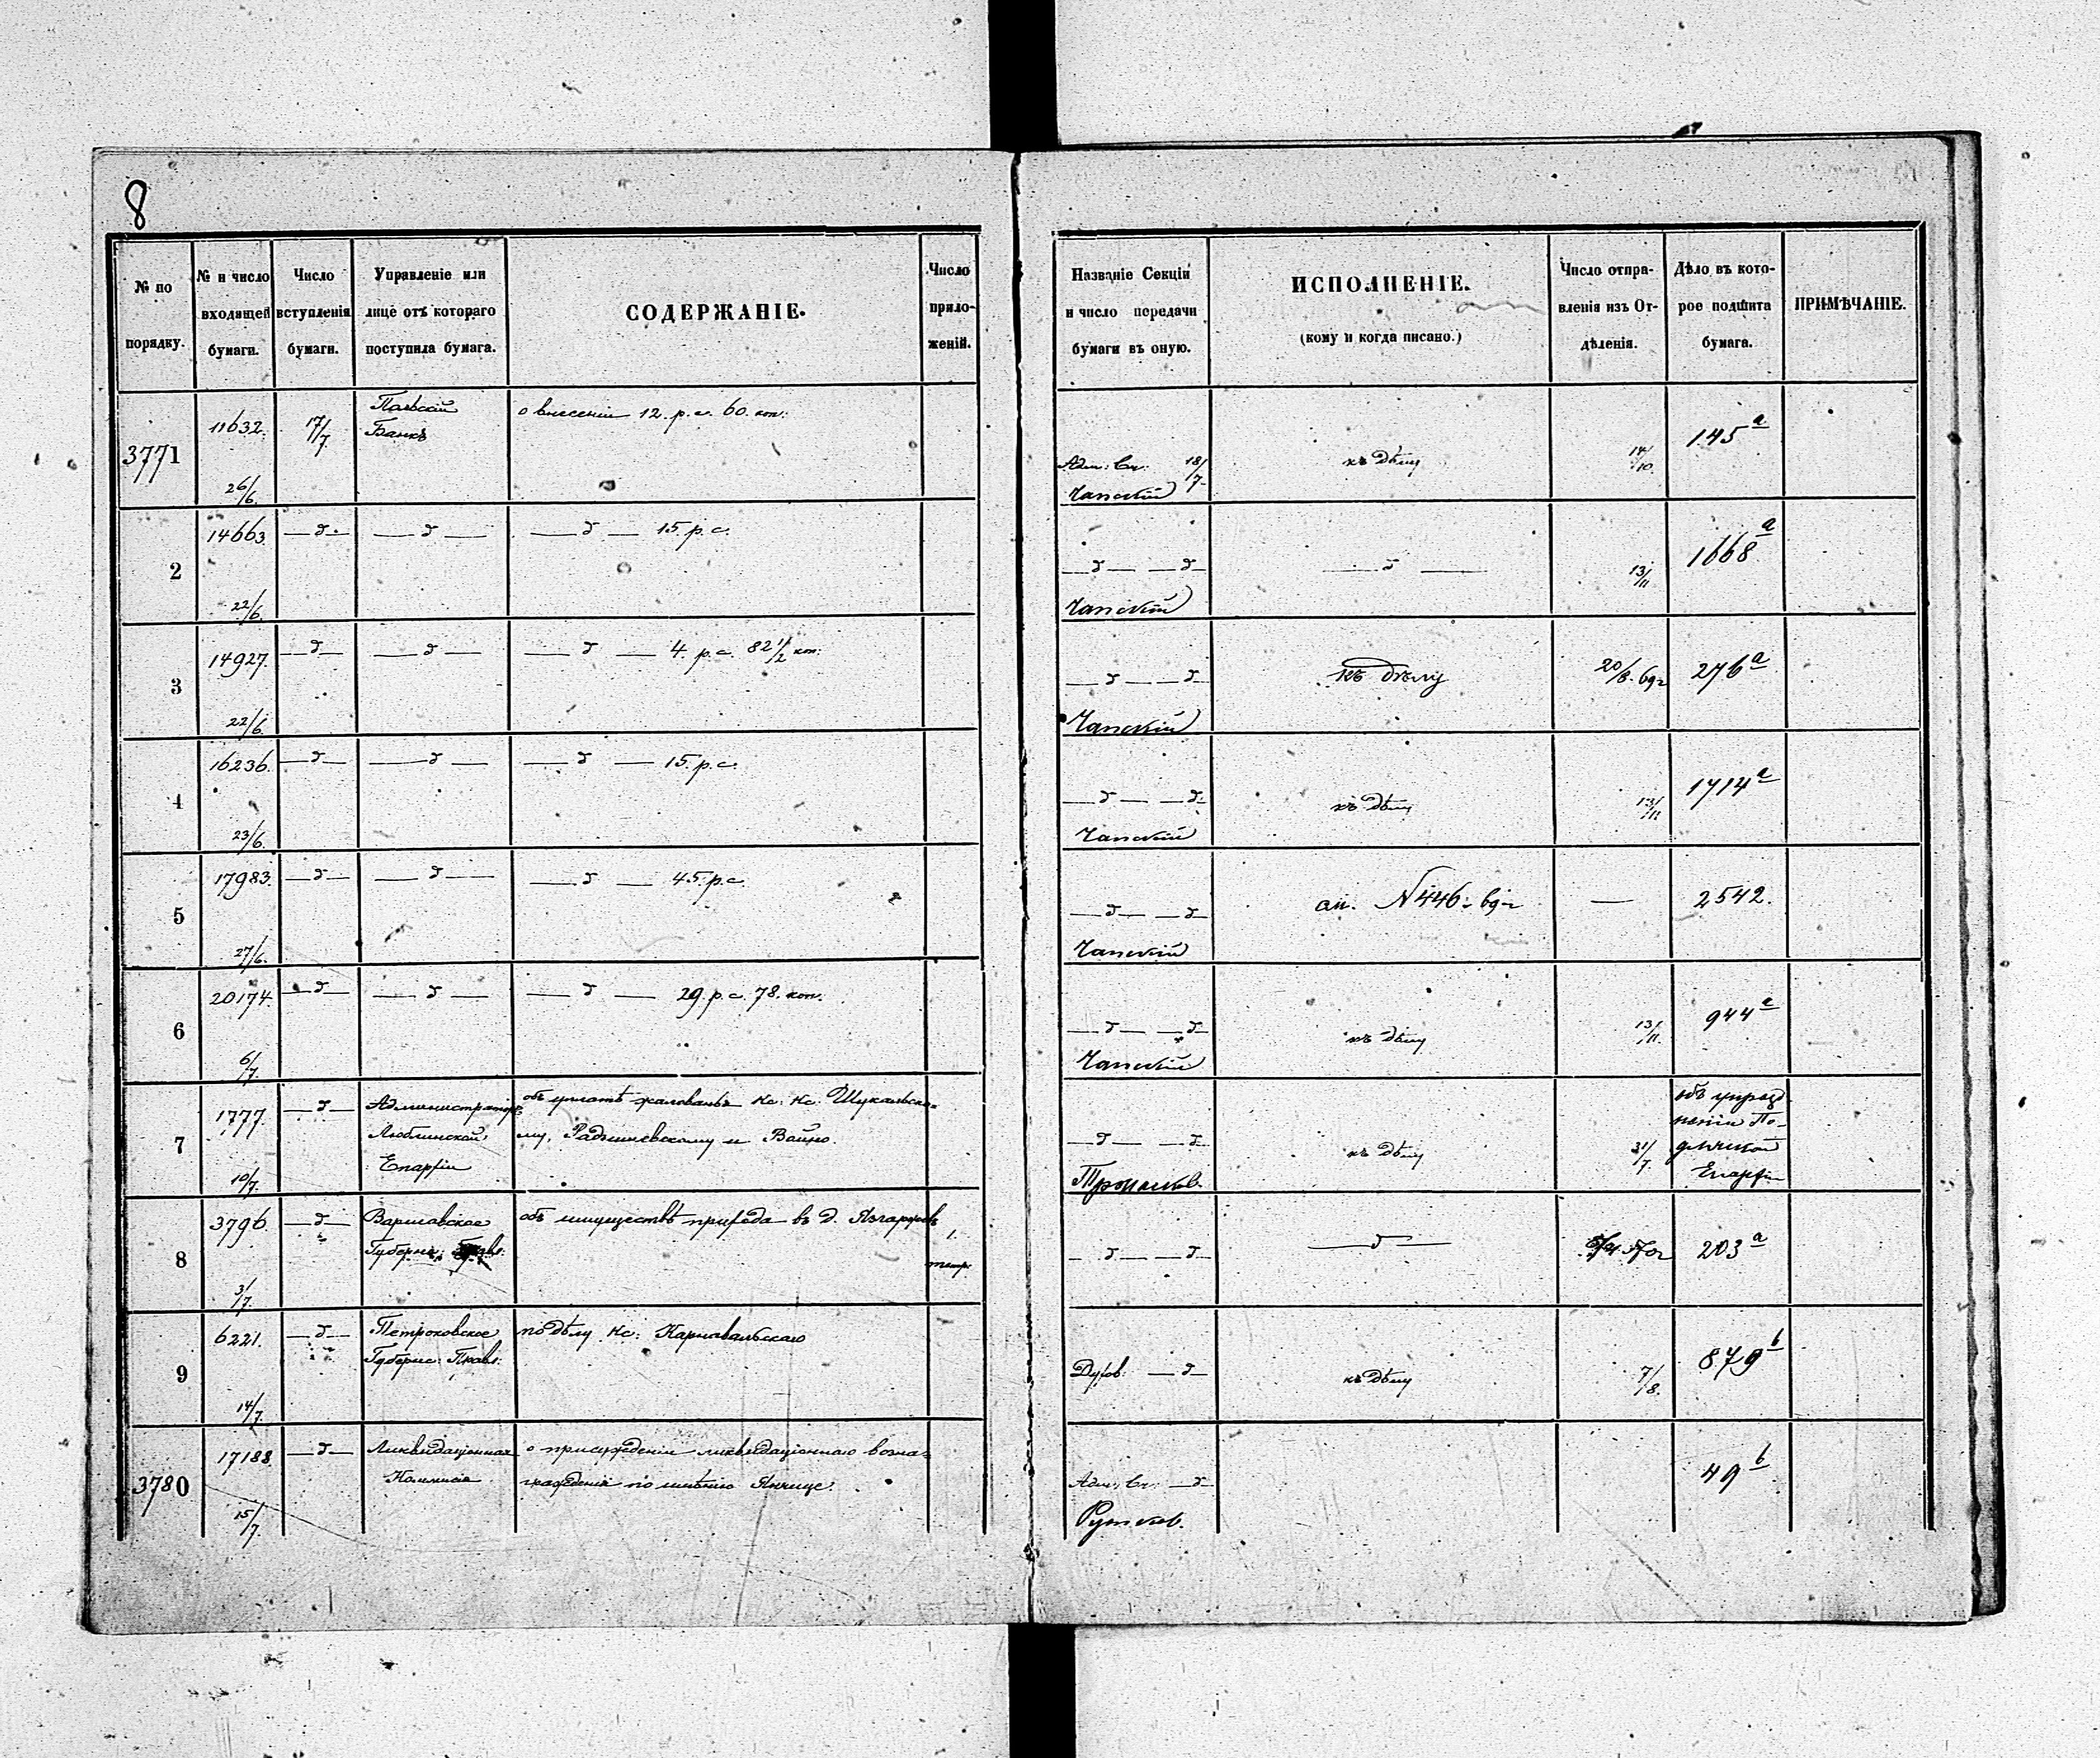 8
№ по порядку.
№ и число входящей бумаги.
Число вступленія бумаги.
Управленіе или лице отъ котораго поступила бумага.
СОДЕРЖАНІЕ.
Число приложеній.
Названіе Секціи и число передачи бумаги въ оную.
ИСПОЛНЕНІЕ.
(кому и когда писано.)
Число отправленія изъ Отдѣленія.
Дѣло въ которое подшита бумага.
ПРИМѢЧАНІЕ.
3771
11632.
26/6.
17/7.
Польскій
Банкъ
о внесеніи 12. р. с. 60. коп:
Адм: Сч: 18/7
Чапскій
къ дѣлу
14/10.
145 a
2
14663.
22/6.
—д— —д— —д— 15. р. с.
—д— —д—
Чапскій
—д—
13/11
1668 a
3
14927.
22/6.
—д— —д— —д— 4. р. с. 82 1/2 коп:
—д— —д—
Чапскій
къ дѣлу
20/8. 69 г
276 a
4
16236.
23/6.
—д— —д— —д— 15. р. с.
—д— —д—
Чапскій
къ дѣлу
13/11
1714 a
5
17983.
27/6.
—д— —д— —д— 45. р. с.
—д— —д—
Чапскій
N 446. 69 г
—
2542.
6
20174.
6/7.
—д— —д— —д— 29. р. с. 78. коп.
—д— —д—
Чапскій
къ дѣлу
13/11.
944 a
7
1777.
10/7.
—д—
Администраторъ
Люблинской
Епархіи
объ уплатѣ жалованья Кс: Кс: Шукальско-
му, Радзишевскому и Война.
—д— —д—
къ дѣлу
31/7.
объ упразд
неніи По-
дляской
Епархіи
8
3796.
3/7.
—д—
Варшавское
Губерн:
объ имуществѣ прихода въ д.
1
—д— —д—
—д—
203 a
9
6221.
14/7.
—д—
Петроковское
Губерн: Правл:
по дѣлу Кс: Карнавальскаго
Духов: —д—
къ дѣлу
7/8.
879 b
3780
17188.
15/7.
—д—
Ликвидаціонная
Коммисія
о присужденіи ликвидаціоннаго возна-
гражденія по имѣнію
Адм: Сч: —д—
49 b